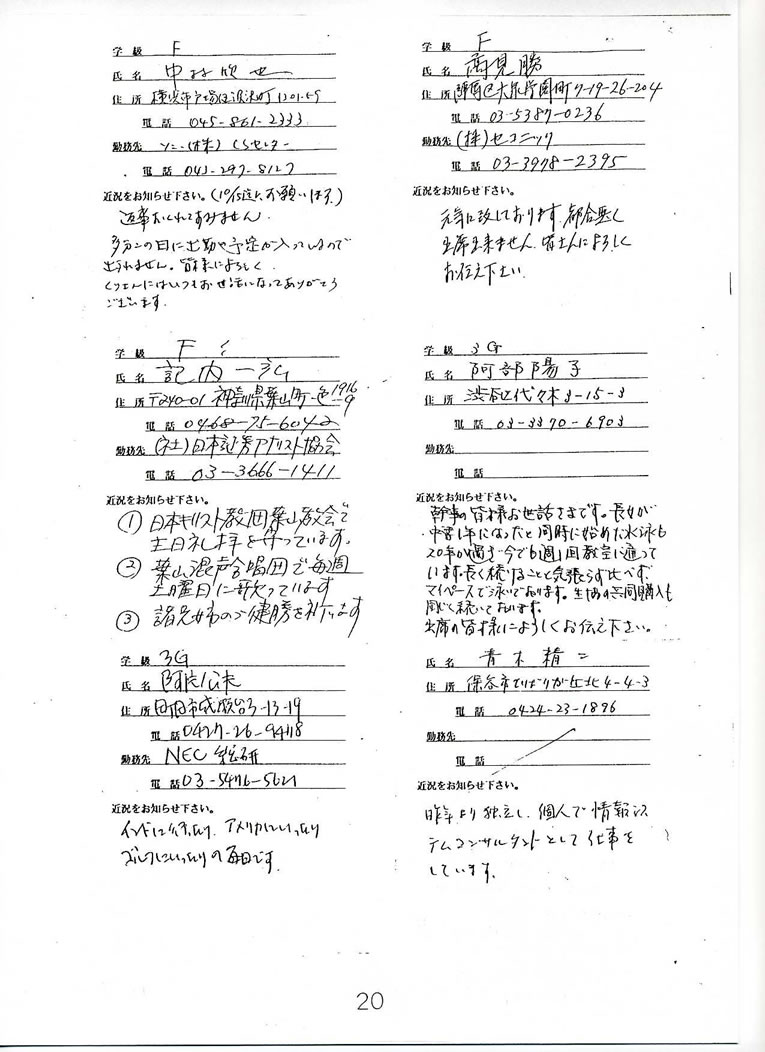 学級 F
氏名 中村欣也
住所 横浜市戸塚区深沢町1201-59
電話 045-861-2333
勤務先 ソニー(株) CSセンター
電話 043-297-8127
近況をお知らせ下さい。
返事おくれてすみません。
多分この日に出勤や予定が入っているので
出られません。皆様によろしく
いつもお世話になってありがとう
ございます。
学級 F
氏名 高見勝
住所 練馬区大泉学園町7-19-26-204
電話 03-5387-0236
勤務先 (株)セコニック
電話 03-3978-2395
近況をお知らせ下さい。
元気に致しております。都合悪く
出席出来ません。皆さんによろしく
お伝え下さい。
学級 F
氏名 記内一弘
住所 〒240-01 神奈川県葉山町一色1916-9
電話 0468-75-6042
勤務先 (社)日本証券アナリスト協会
電話 03-3666-1411
近況をお知らせ下さい。
① 日本キリスト教団葉山教会で
主日礼拝を守っています。
② 葉山混声合唱団で毎週
土曜日に歌っています
③ 諸兄姉のご健勝を祈ります
学級 3G
氏名 阿部陽子
住所 渋谷区代々木3-15-3
電話 03-3370-6903
勤務先
電話
近況をお知らせ下さい。
幹事の皆様お世話さまです。長女が
中学1年になったと同時に始めた水泳も
20年が過ぎ今でも週1回教室に通って
います。長く続けることと気張らず比べず
マイペースで泳いでおります。生協の共同購入も
同じく続いております。
出席の皆様によろしくお伝え下さい。
学級 3G
氏名
住所 町田市成瀬台3-13-19
電話 0427-26-9448
勤務先 NEC 総研
電話 03-5476-5621
近況をお知らせ下さい。
インドに行ったり、アメリカにいったり
ゴルフにいったりの毎日です。
氏名 青木精二
住所 保谷市ひばりが丘北4-4-3
電話 0424-23-1896
勤務先
電話
近況をお知らせ下さい。
昨年より独立し、個人で情報シス
テムコンサルタントとして仕事を
しています。
20